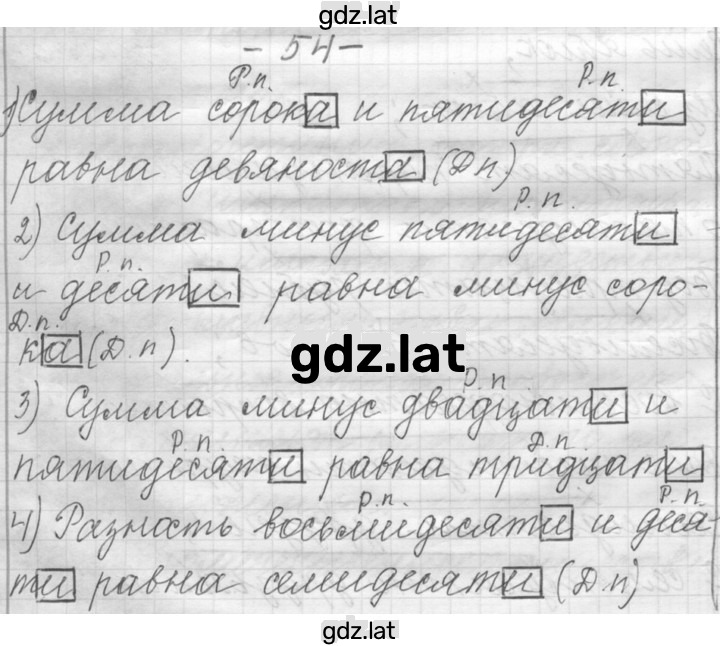 gdz.lat
- 54 -
Р.п. Р.п.
1) Сумма сорока и пятидесяти
равна девяноста (Дп)
Р.п.
2) Сумма минус пятидесяти
Р.п.
и десяти равна минус соро-
Д.п.
ка (Д.п).
gdz.lat
Р.п.
3) Сумма минус двадцати и
Р.п. Д.п.
пятидесяти равна тридцати
Р.п. Р.п.
4) Разность восьмидесяти и деся-
ти равна семидесяти (Д.п)
gdz.lat